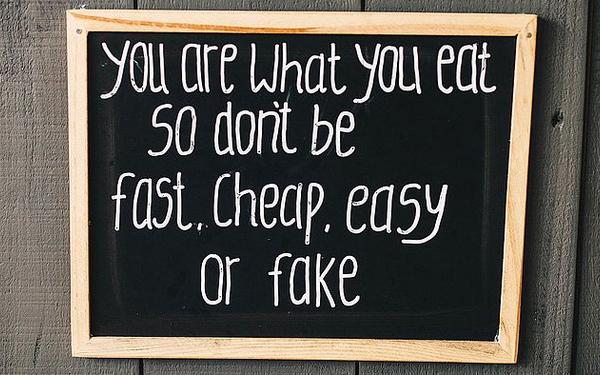 you are what you eat
so don't be
fast, cheap, easy
or fake